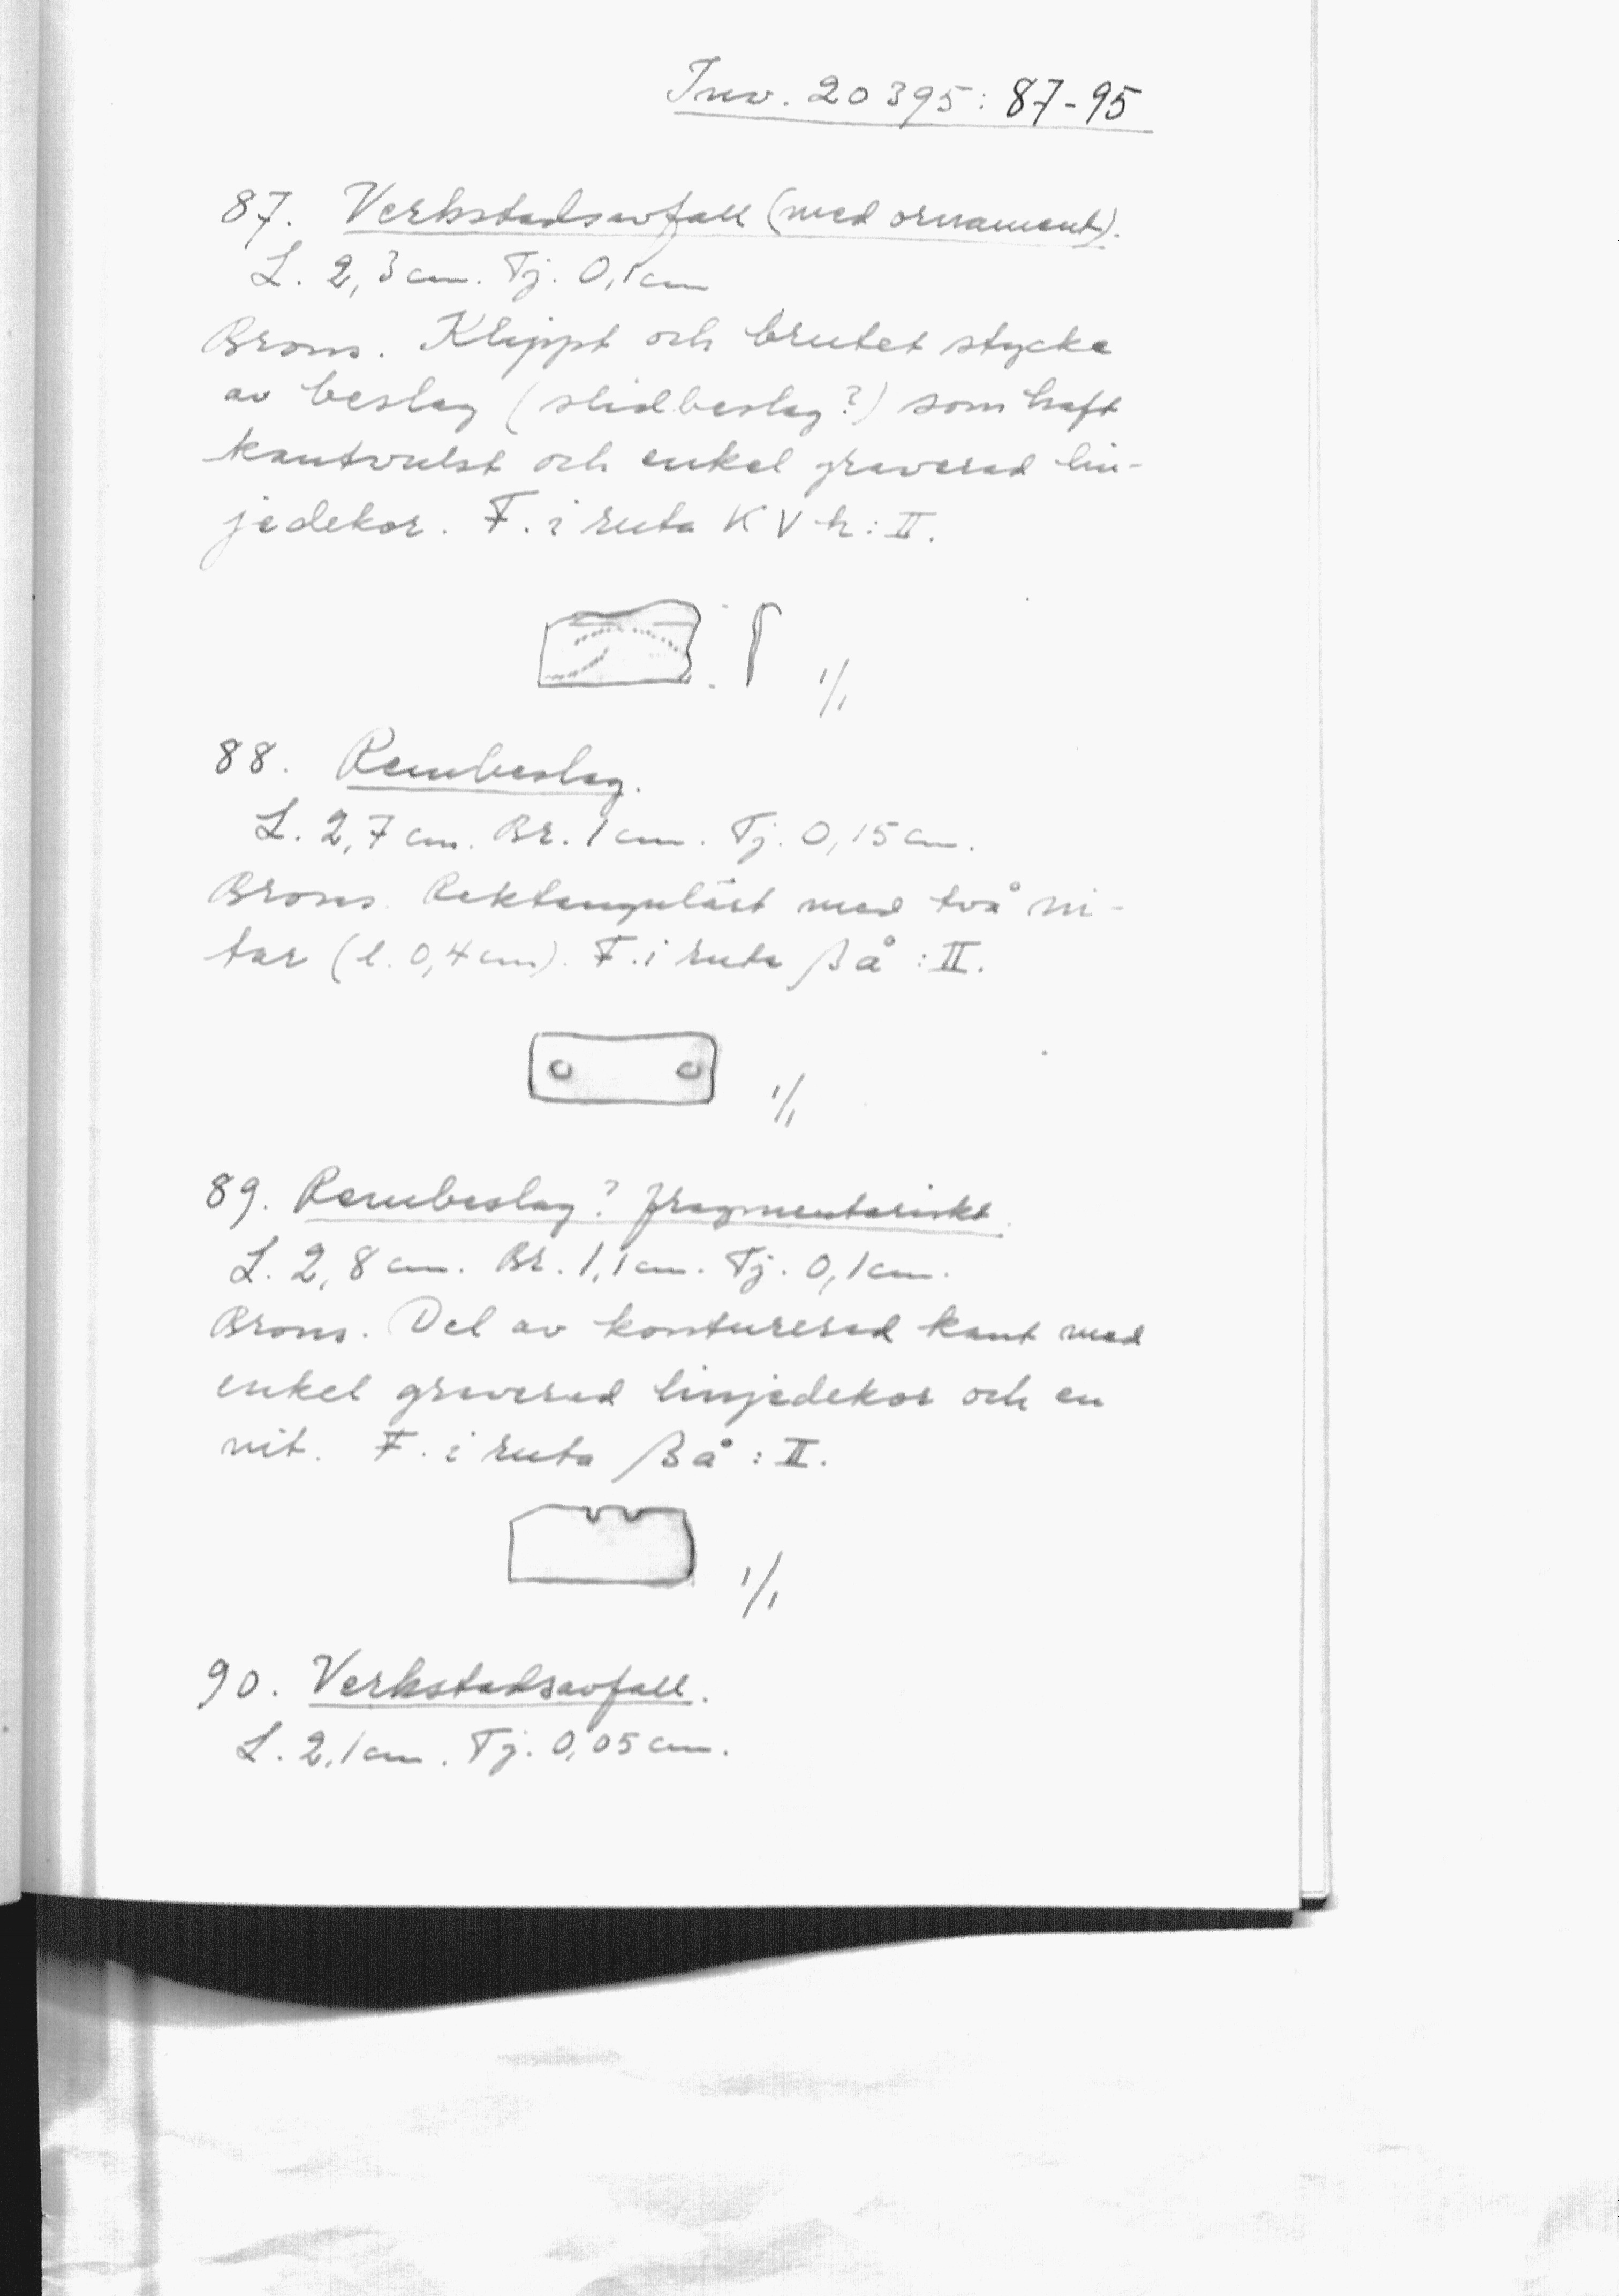 Inv. 20395: 87-95
87. Verkstadsavfall (med ornament).
L. 2,3 cm. Tj. 0,1 cm
Brons. Klippt och brutet stycke
av beslag (slidbeslag?) som haft
kantvulst och enkel graverad lin-
jedekor. F. i ruta K V h: II.
1/1
88. Rembeslag.
L. 2,7 cm. Br. 1 cm. Tj. 0,15 cm.
Brons. Rektangulärt med två ni-
tar (l. 0,4 cm). F. i ruta β å : II.
1/1
89. Rembeslag? fragmentariskt.
L. 2,8 cm. Br. 1,1 cm. Tj. 0,1 cm.
Brons. Del av konturerad kant med
enkel graverad linjedekor och en
nit. F. i ruta β å : II.
1/1
90. Verkstadsavfall.
L. 2,1 cm. Tj. 0,05 cm.